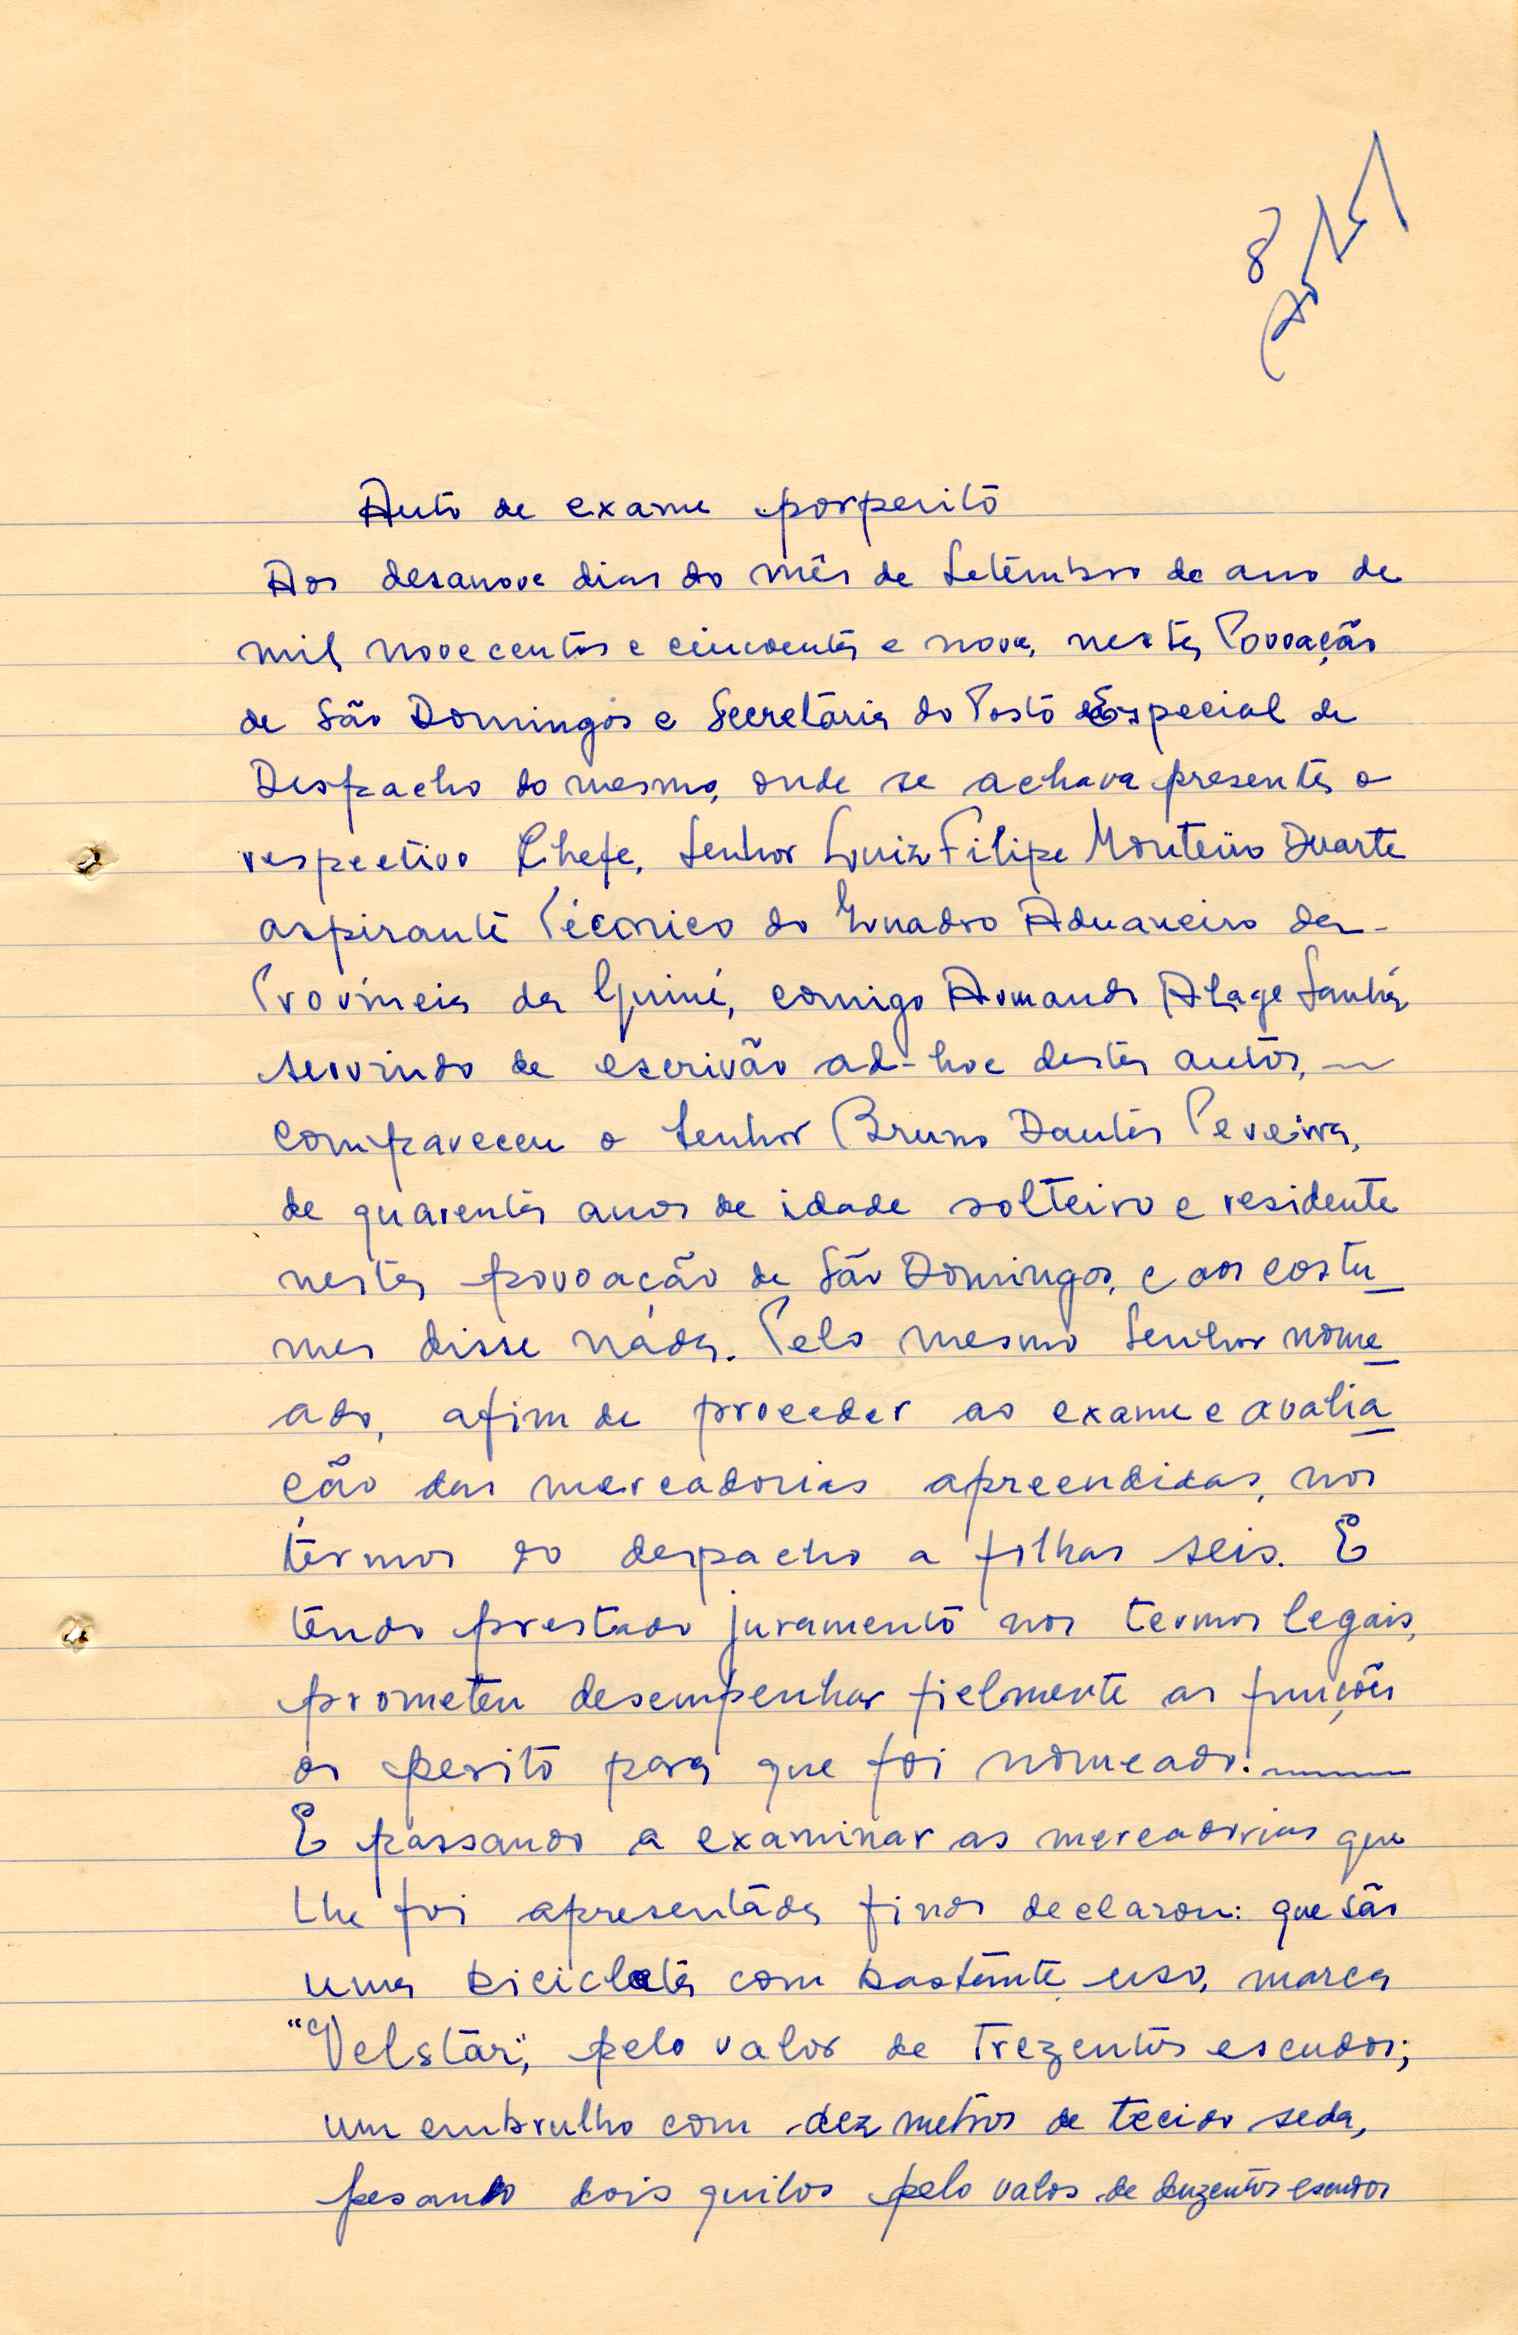 8
Auto de exame porperito
Aos desanove dias do mês de Setembro de ano de
mil novecentos e cincoenta e nove, nesta Povoação
de São Domingos e Secretaria do Posto Especial de
Despacho do mesmo, onde se achava presente o
respectivo Chefe, Senhor Luiz Filipe Monteiro Duarte
aspirante Técnico do Quadro Aduaneiro da
Província da Guiné, comigo Armando Alage Sanhá
servindo de escrivão ad-hoc destes autos,
compareceu o Senhor Bruno Dantas Pereira,
de quarenta anos de idade solteiro e residente
nesta povoação de São Domingos, e aos costu_
mes disse náda. Pelo mesmo Senhor nome_
ado, afim de proceder ao exame e avalia_
ção das mercadorias apreendidas, nos
termos do despacho a folhas seis. E
tendo prestado juramento nos termos legais,
prometeu desempenhar fielmente as funções
de perito para que foi nomeado.
E passando a examinar as mercadorias que
lhe foi apresentáda findo declarou: que são
uma bicicleta com bastante uso, marca
"Velstar", pelo valor de Trezentos escudos;
um embrulho com dez metros de tecido seda,
pesando dois quilos pelo valor de duzentos escudos